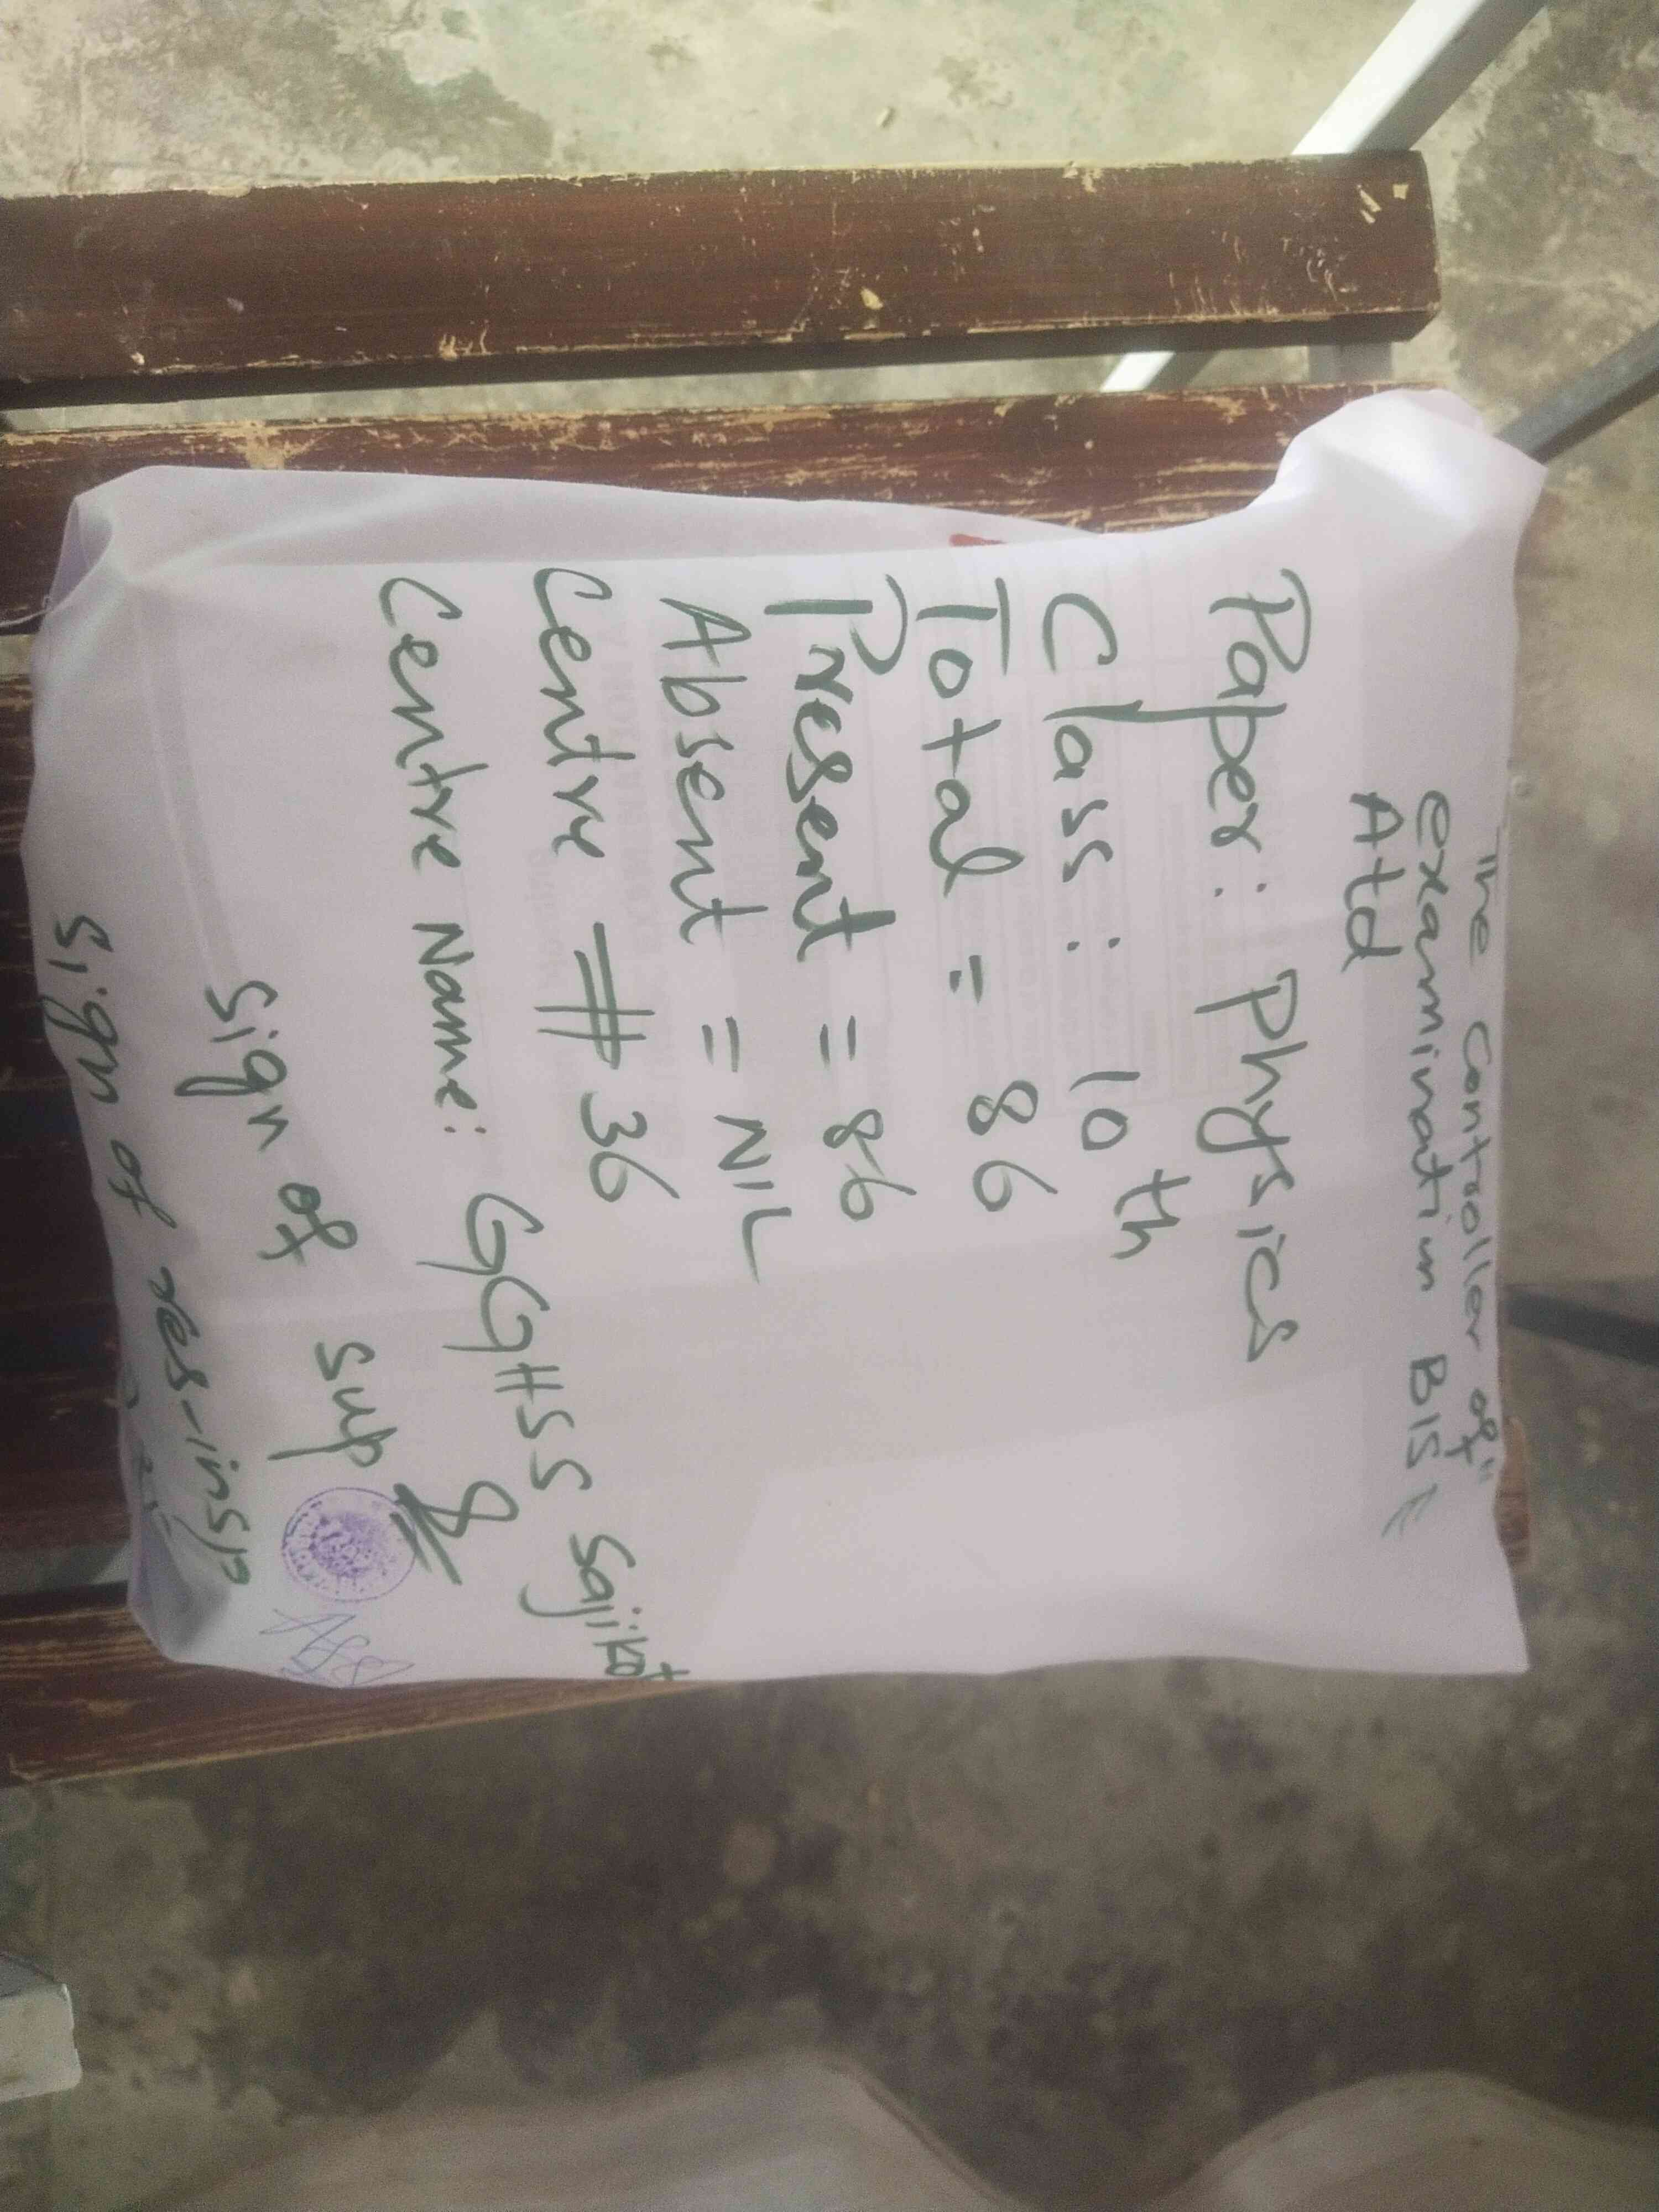 "The Controller of"
Examination BISE
Atd
Paper: Physics
Class: 10th
Total = 86
Present = 86
Absent = NIL
Centre # 36
Centre Name: GGHSS Sajikot
Sign of sup
Sign of res-insp